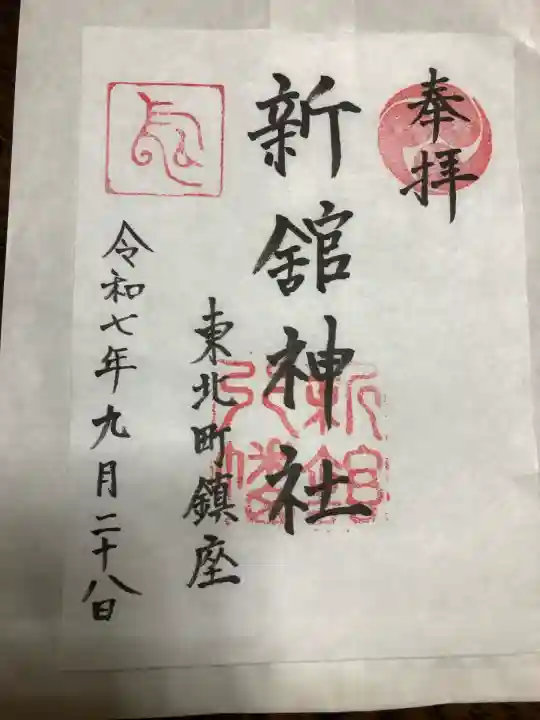 奉拝
新舘神社
新舘
八幡
東北町鎮座
令和七年九月二十八日